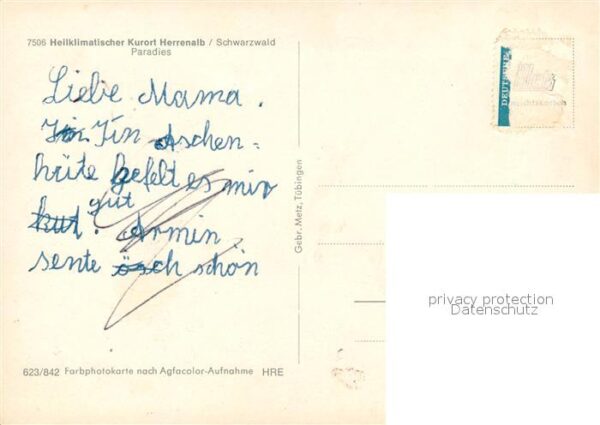 7506 Heilklimatischer Kurort Herrenalb / Schwarzwald
Paradies
Liebe Mama.
In Aschen=
hüte gefelt es mir
gut. Armin
sente schön
Gebr. Metz, Tübingen
DEUTSCHE
privacy protection
Datenschutz
623/842 Farbphotokarte nach Agfacolor-Aufnahme HRE